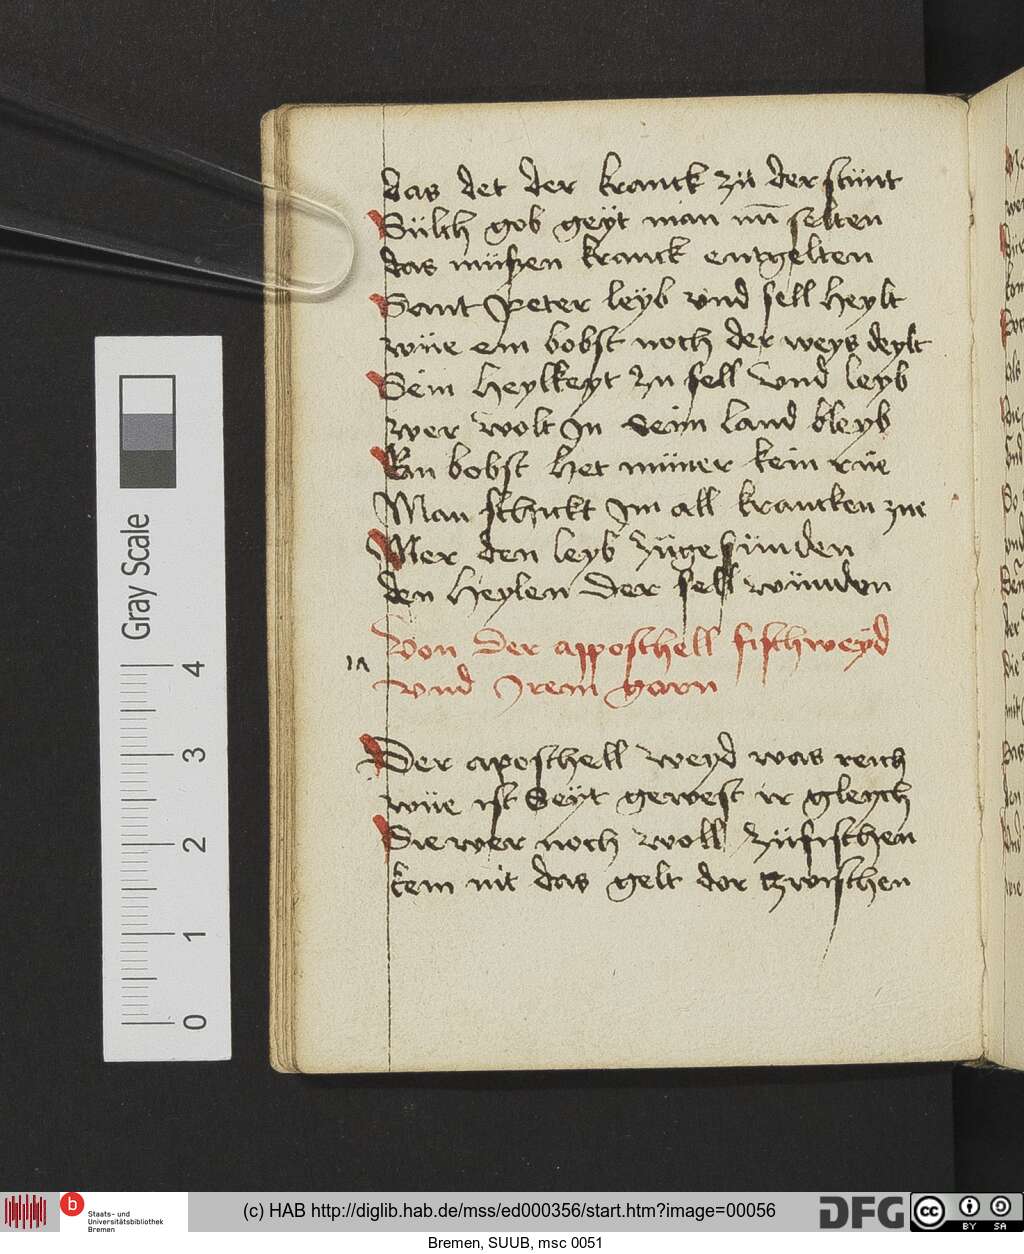 das det der kranck zü der stünt
Sülch gob geÿt man nūn selten
das müßen kranck entgelten
Sant Peter leÿb vnd sell heÿlt
wüe ein bobst noch der weÿs deÿlt
Sein heÿlkeÿt zu sell vnd leÿb
wer wolt In seim land bleÿb
Ein bobst het nümer kein rüe
Man schickt Im all krancken zue
Wer den leÿb zügebünden
den heÿlen der sell wünden
Von der apposthell fischweÿd
vnd Irem garn
Der aposthell weÿd was reich
wüe ist Seÿt gewest ir gleÿch
Sie wer noch woll züfischen
kem nit das gelt dor tzwischen
Gray Scale
4
3
2
1
0
b
Staats- und
Universitätsbibliothek
Bremen
(c) HAB http://diglib.hab.de/mss/ed000356/start.htm?image=00056
DFG
cc
BY SA
Bremen, SUUB, msc 0051